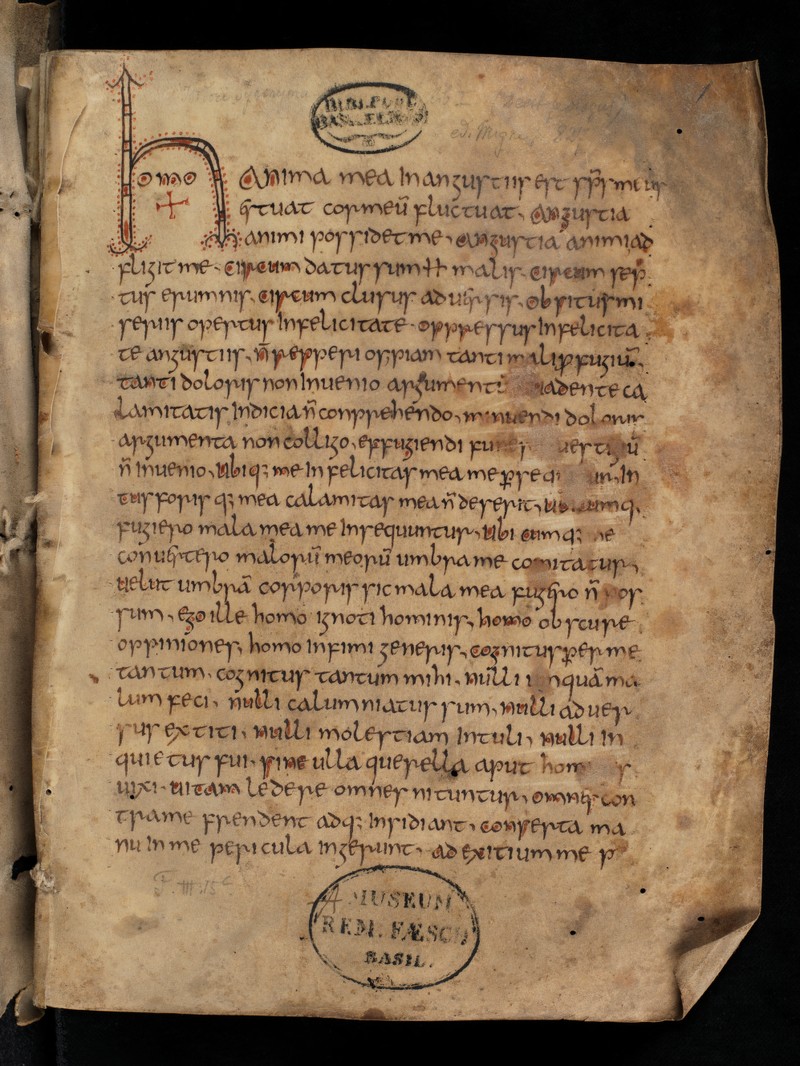 BIBL. PUBL.
BASILEENSIS
ed. Migne
1
homo Anima mea in angustiis est sp̄s meus
ęstuat cor meū fluctuat, angustia
animi possidet me, angustia animi ad
fligit me, circum datus sum malis, circum sep
tus erumnis, circum clusus aduersis, obsitus mi
seriis opertus infelicitate, oppressus infelicita
te angustiis, n̄ repperi uspiam tanti mali p̱fugiū,
tanti doloris non inuenio argumentū, euadente ca
lamitatis indicia n̄ conprehendo, minuendi doloris
argumenta non colligo, effugiendi fu
n̄ inuenio, ubiq; me infelicitas mea me p̱seq in
tus foris q; mea calamitas mea n̄ deserit, ubicumq,
fugiero mala mea me insequuntur, ubi cumq; me
conuertero malorū meorū umbra me comitatur,
uelut umbrā corporis sic mala mea fugero n̄ pos
sum, ego ille homo ignoti hominis, homo obscure
oppiniones, homo infimi generis, cognitus p̱ per me
tantum, cognitus tantum mihi, nulli umquā ma
lum feci, nulli calumniatus sum, nulli aduer
sus extiti, nulli molestiam intuli, nulli in
quietus fui, sine ulla querella aput homines
uixi, uitam ledere omnes nituntur, omnes con
tra me frendent adq; insidiant, conserta ma
nu in me pericula ingerunt, ad exitium me p
F. III. 15 c
MUSEUM
REM. FÆSCH
BASIL.